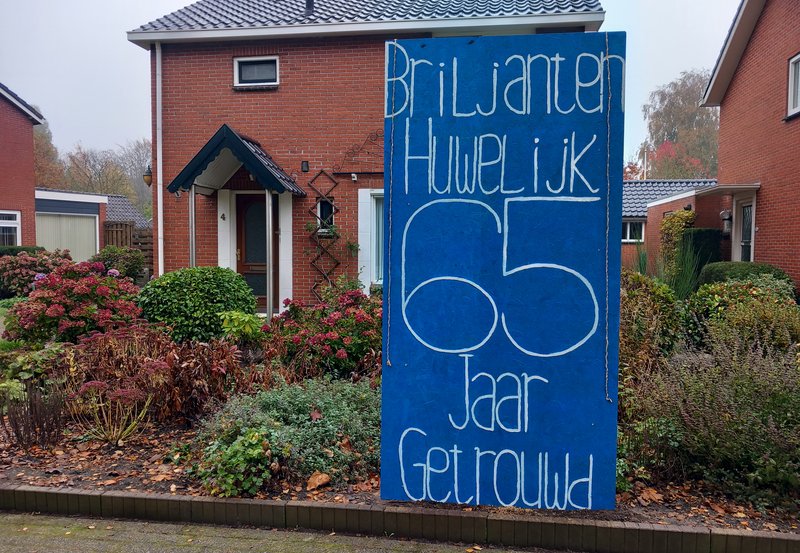 Briljanten
Huwelijk
65
Jaar
Getrouwd
4